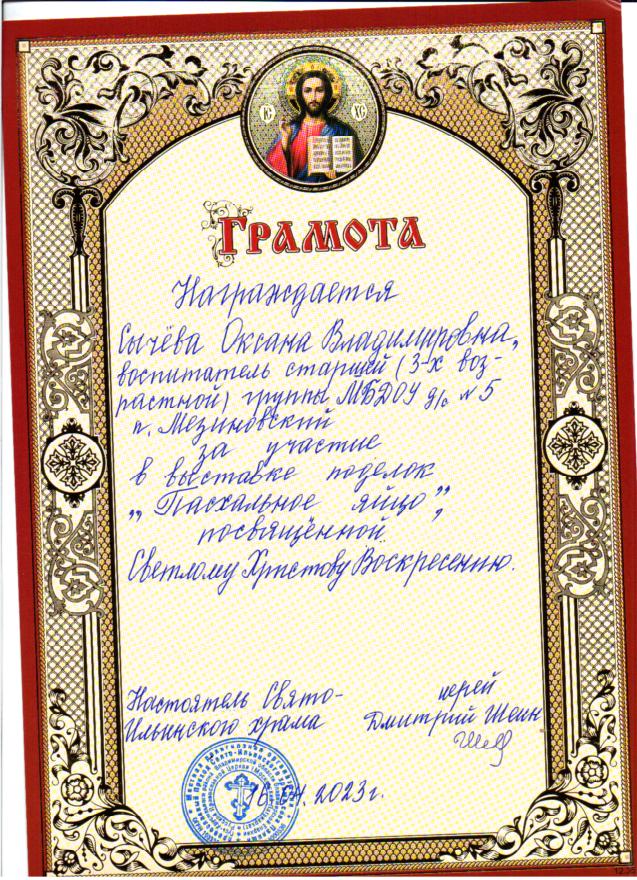 IC XC
ГРАМОТА
Награждается
Сычёва Оксана Владимировна,
воспитатель старшей (3-х воз-
растной) группы МБДОУ д/с №5
п. Мезиновский
за участие
в выставке поделок
„Пасхальное яйцо”,
посвящённой
Светлому Христову Воскресению.
Настоятель Свято- иерей
Ильинского храма Дмитрий Шеин
16.04.2023г.